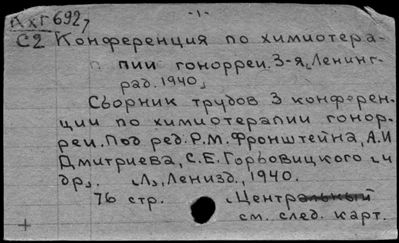 - 1 -
АхГ 692,
С2 Конференция по химиотера-
пии гонорреи. 3-я, Ленинг-
рад. 1940,
Сборник трудов 3 конферен-
ции по химиотерапии гонор-
реи. Под ред. Р.М. Фронштейна, А.И
Дмитриева, С.Е. Горбовицкого и
др. Л, Лениздат, 1940.
76 стр. Центральный
см. след. карт.